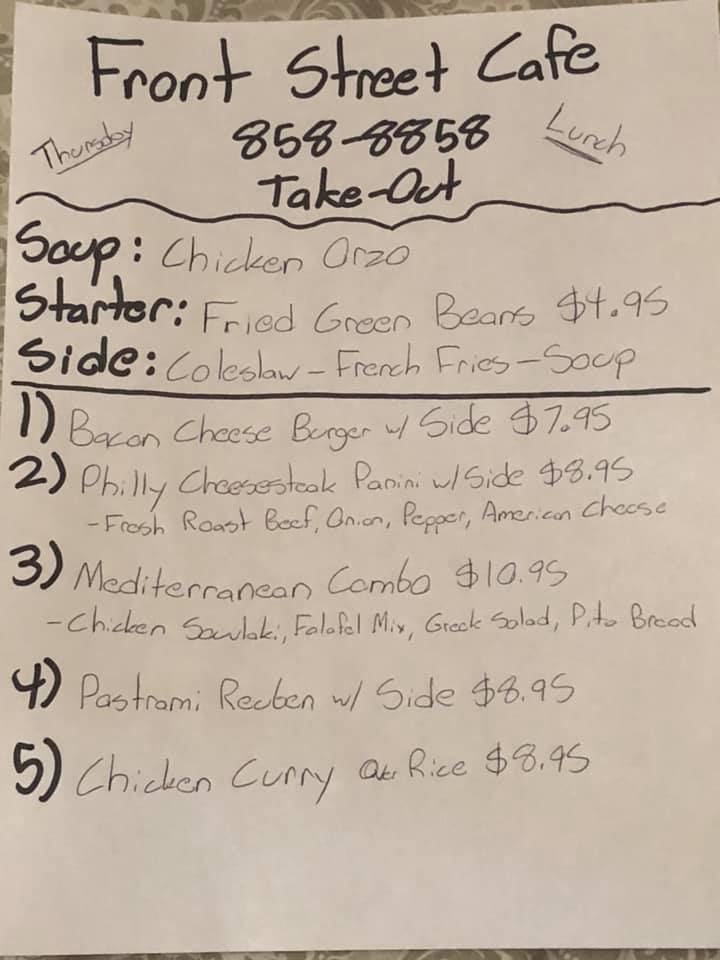 Front Street Cafe
Thursday 858-8858 Lunch
Take-Out
Soup: Chicken Orzo
Starter: Fried Green Beans $4.95
Side: Coleslaw - French Fries - Soup
1) Bacon Cheese Burger w/ Side $7.95
2) Philly Cheesesteak Panini w/ Side $8.95
- Fresh Roast Beef, Onion, Pepper, American Cheese
3) Mediterranean Combo $10.95
- Chicken Souvlaki, Falafel Mix, Greek Salad, Pita Bread
4) Pastrami Reuben w/ Side $8.95
5) Chicken Curry Over Rice $8.95